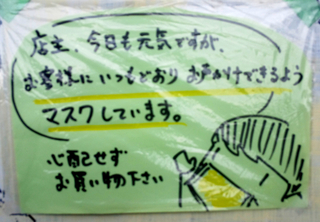 店主、今日も元気ですが、
お客様にいつもどおりお声がけできるよう
マスクしています。
心配せず
お買い物下さい